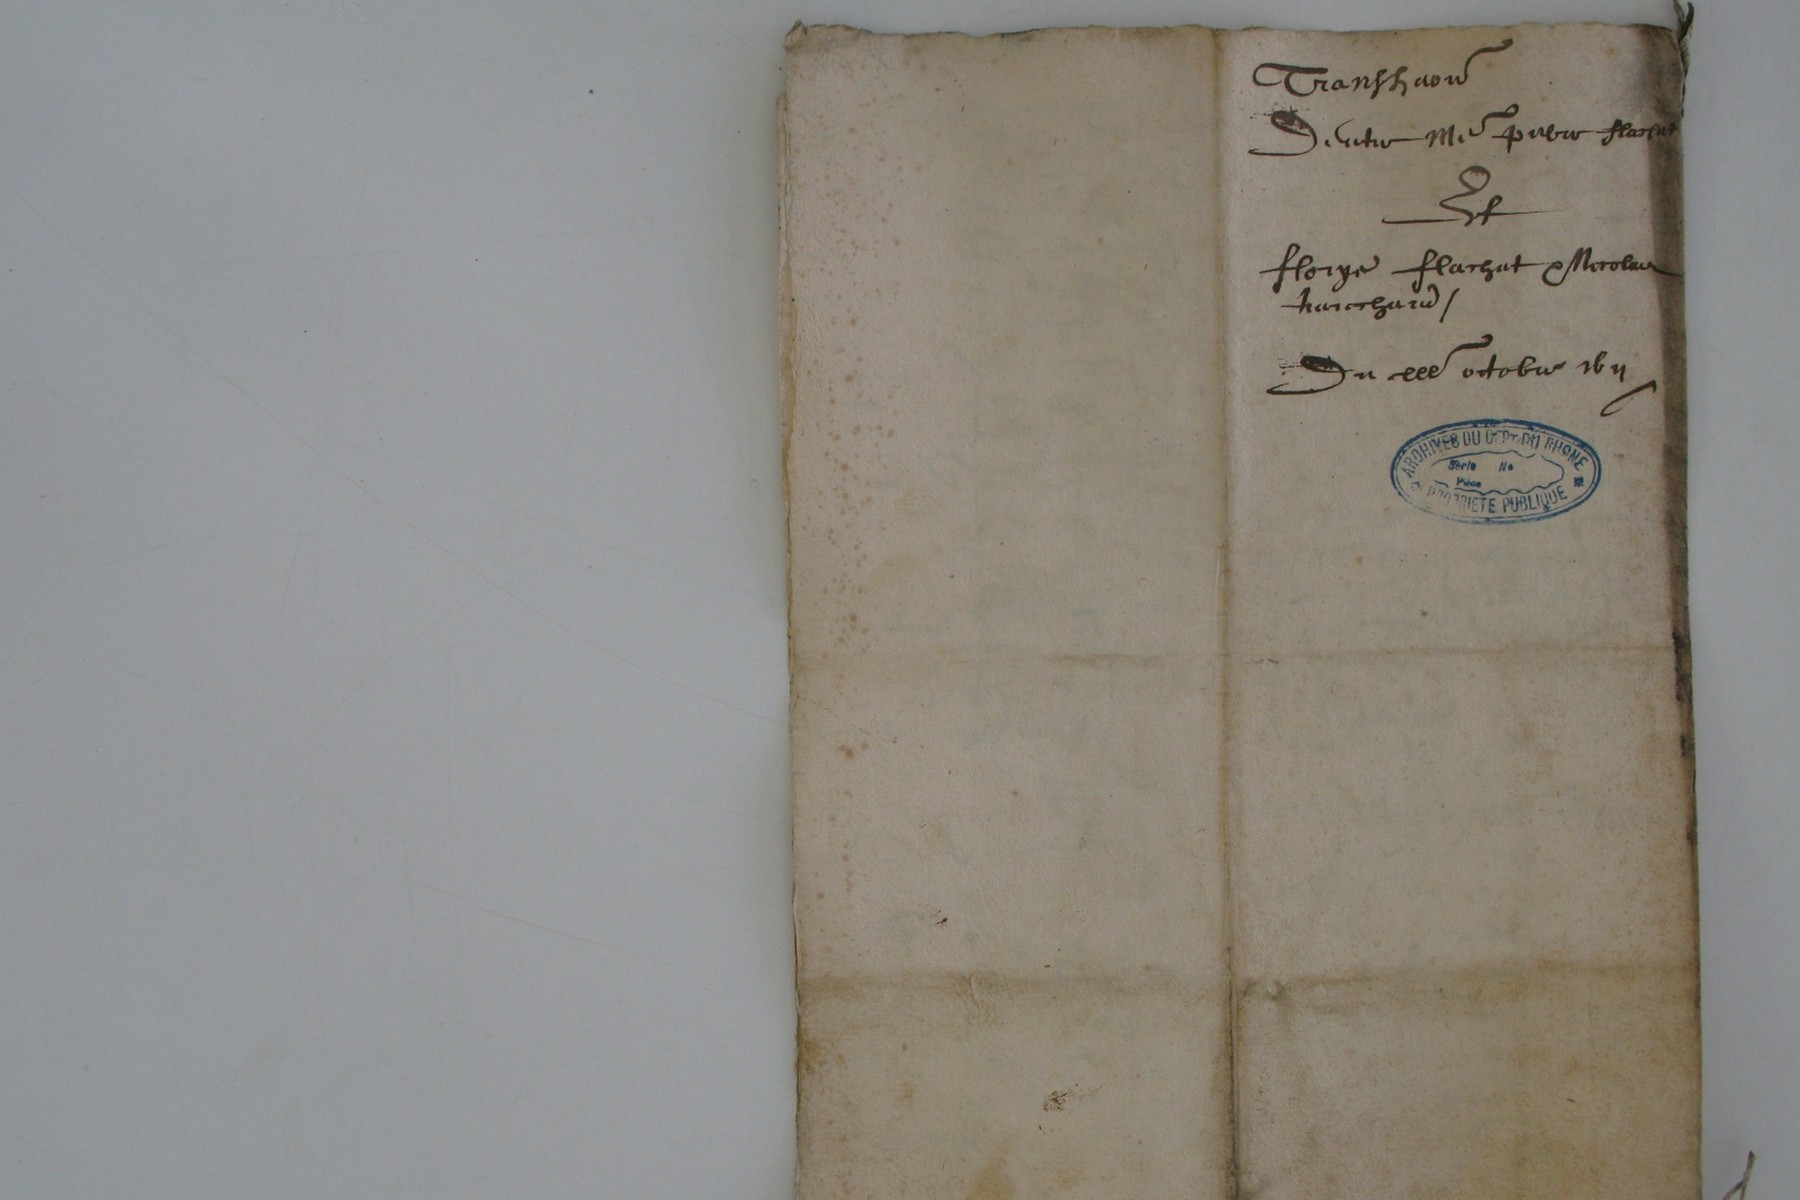 Transhaon
Dentre Me pierre flachat
Et
florye flachat & Nicolas
Du xxx octobre 1611
ARCHIVES DU DEPT DU RHONE
Serie No
Pièce
PROPRIETE PUBLIQUE